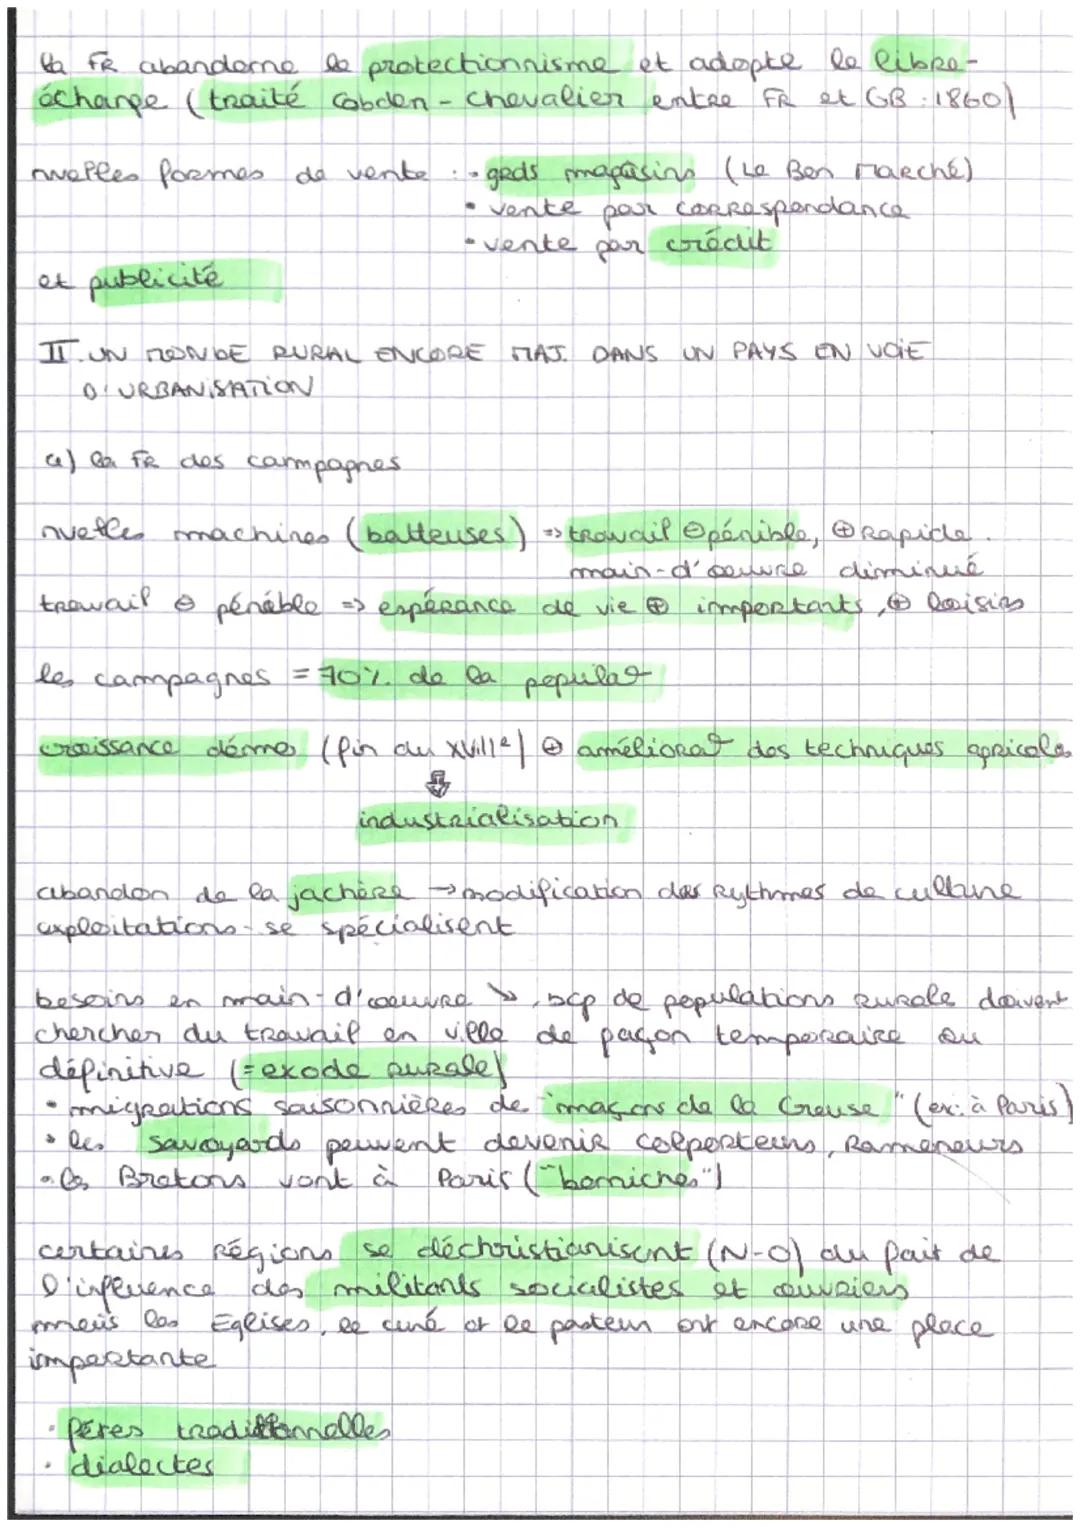 la FR abandonne le protectionnisme et adopte le libre-
échange (traité Cobden - Chevalier entre FR et GB : 1860)
nvelles formes de vente : • grds magasins (Le Bon Marché)
• vente par correspondance
• vente par crédit
et publicité
II. UN MONDE RURAL ENCORE MAJ. DANS UN PAYS EN VOIE
D'URBANISATION
a) la FR des campagnes
nvelles machines (batteuses) => travail ⊖ pénible, ⊕ rapide.
main-d'oeuvre diminué
travail ⊖ pénible => espérance de vie ⊕ importants, ⊕ loisirs
les campagnes = 70% de la populat°
croissance démo (fin du XVIIIe) ⊕ améliorat° des techniques agricoles
⇩
industrialisation
abandon de la jachère → modification des rythmes de culture
exploitations se spécialisent
besoins en main-d'oeuvre ↘, bcp de populations rurale doivent
chercher du travail en ville de façon temporaire ou
définitive (= exode rurale)
• migrations saisonnières de "maçons de la Creuse" (ex: à Paris)
• les savoyards peuvent devenir colporteurs, ramoneurs
• les Bretons vont à Paris ("bonniches")
certaines régions se déchristianisent (N-O) du fait de
l'influence des militants socialistes et ouvriers
mais les Eglises, le curé et le pasteur ont encore une place
importante
• fêtes traditionnelles
• dialectes